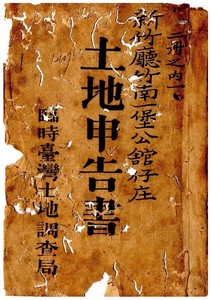 二冊之內一
新竹廳竹南一堡公館仔庄
土地申告書
臨時臺灣土地調查局